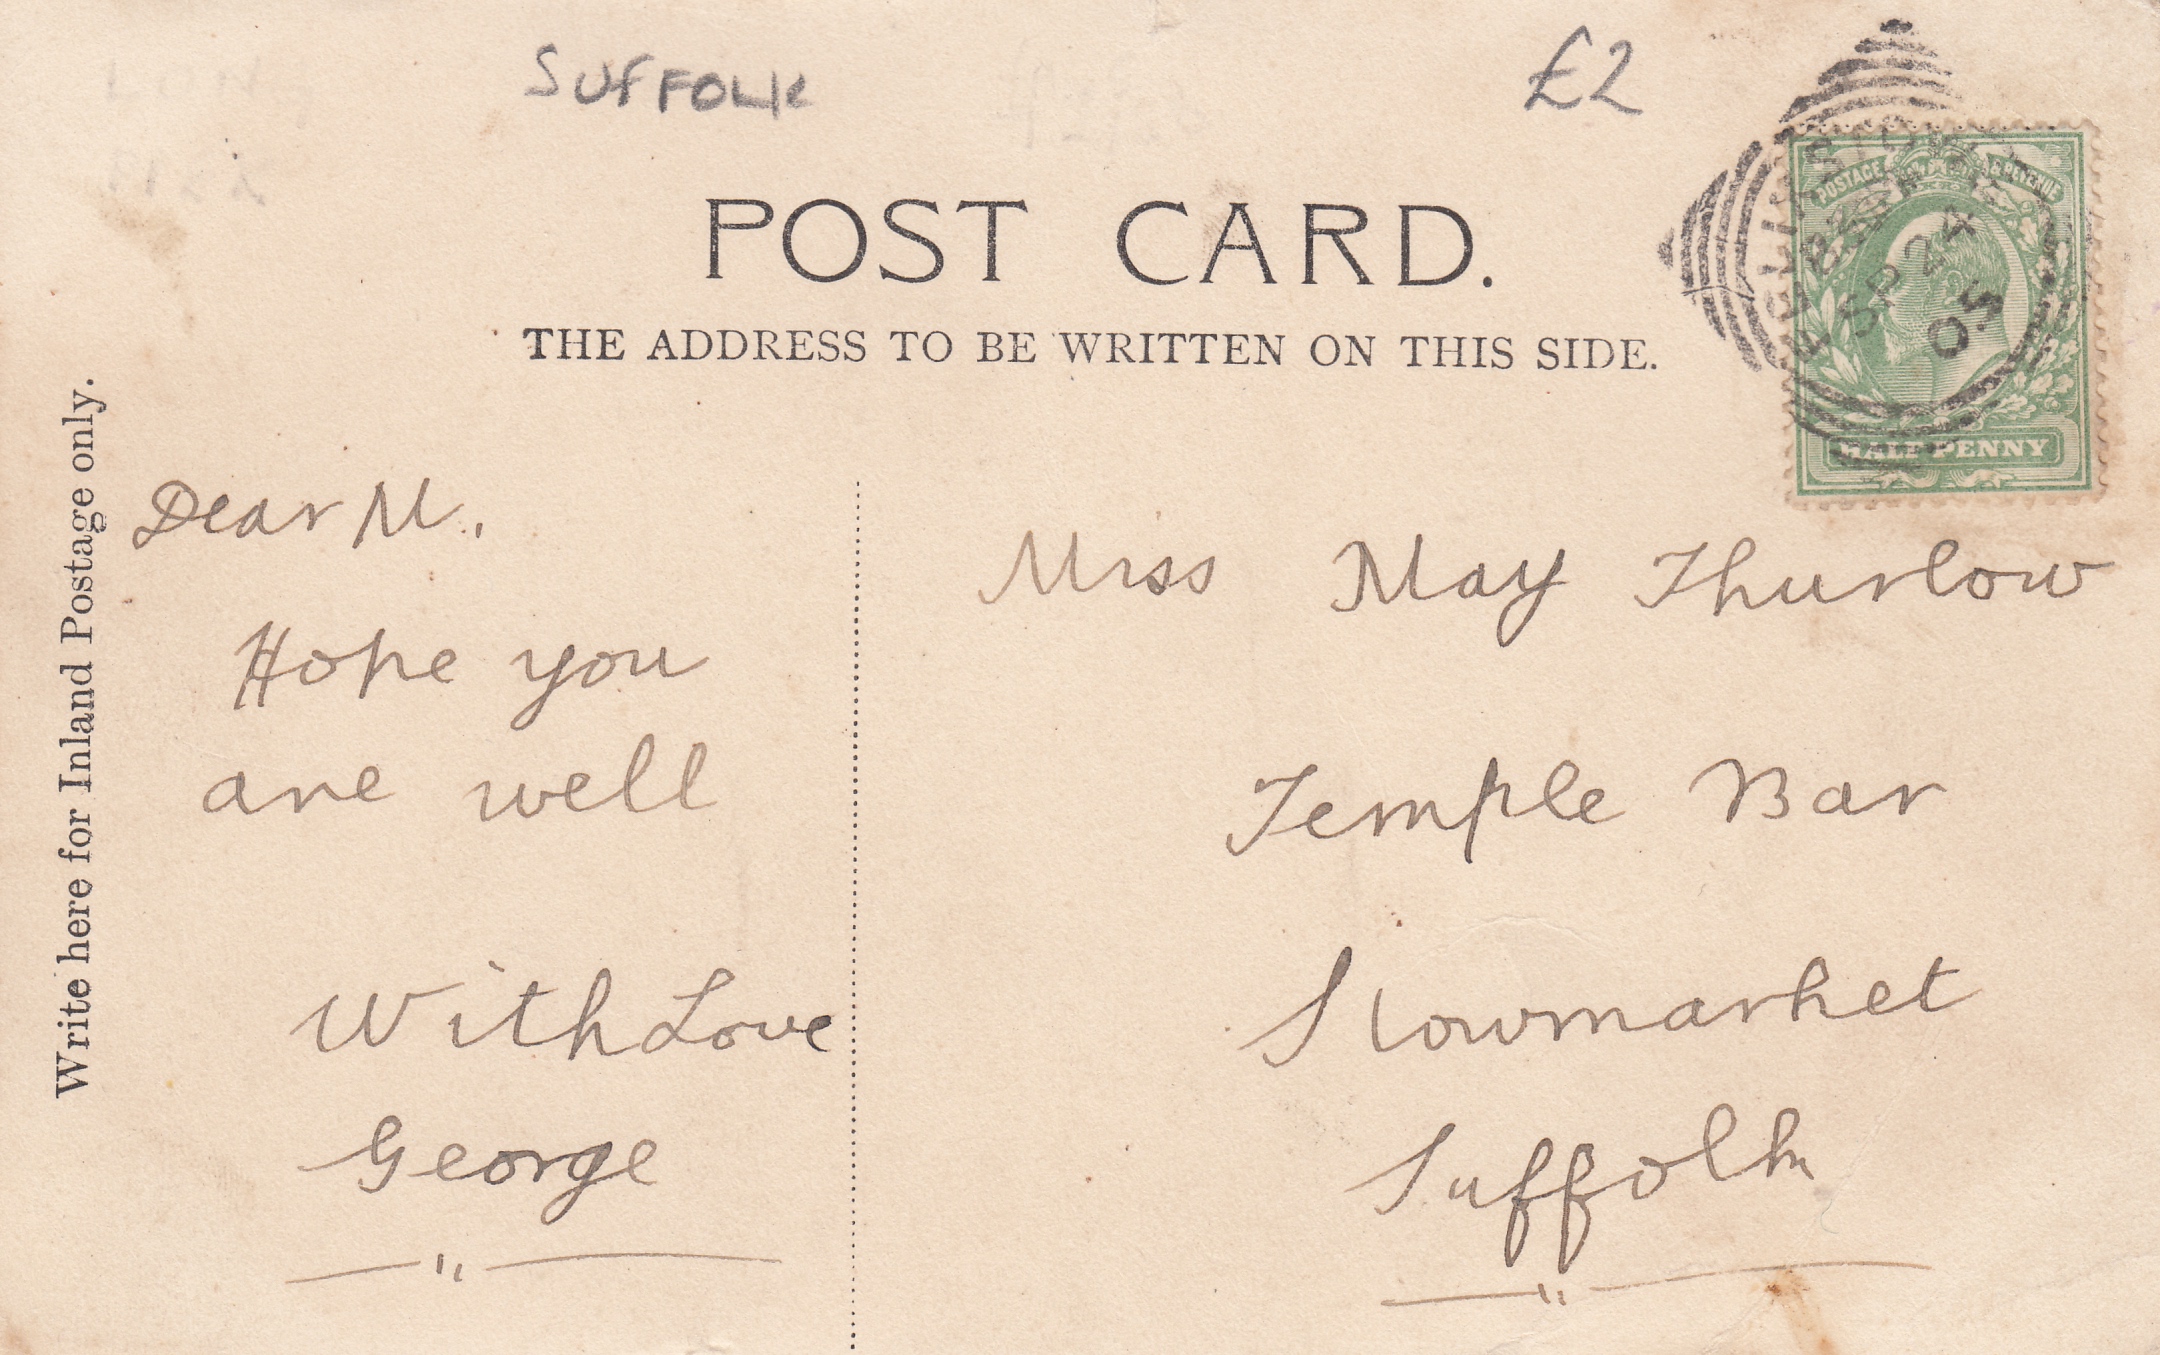 SUFFOLK
£2
POST CARD.
THE ADDRESS TO BE WRITTEN ON THIS SIDE.
POSTAGE & REVENUE
FELIXSTOWE
SP 24
05
HALF PENNY
Write here for Inland Postage only.
Dear M.
Hope you
are well
With Love
George
Miss May Thurlow
Temple Bar
Stowmarket
Suffolk